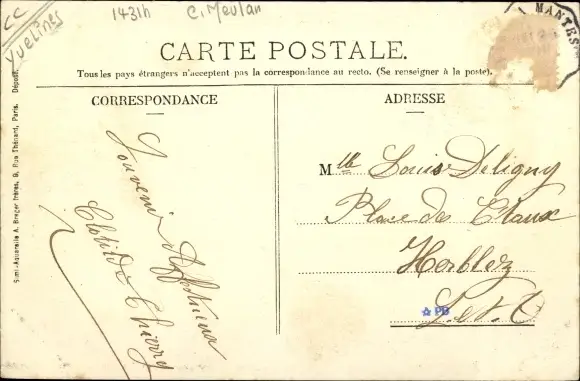 CC
Yvelines
1431h C. Meulan
MANTES
CARTE POSTALE.
Tous les pays étrangers n'acceptent pas la correspondance au recto. (Se renseigner à la poste).
CORRESPONDANCE
Souvenir Affectueux
Clotilde Thierry
ADRESSE
Mlle Louise Deligny
Place de Claux
Herblez
S. et. O
PB
Simi-Aquarelle A. Breger frères, 9, Rue Thénard, Paris. Déposé.